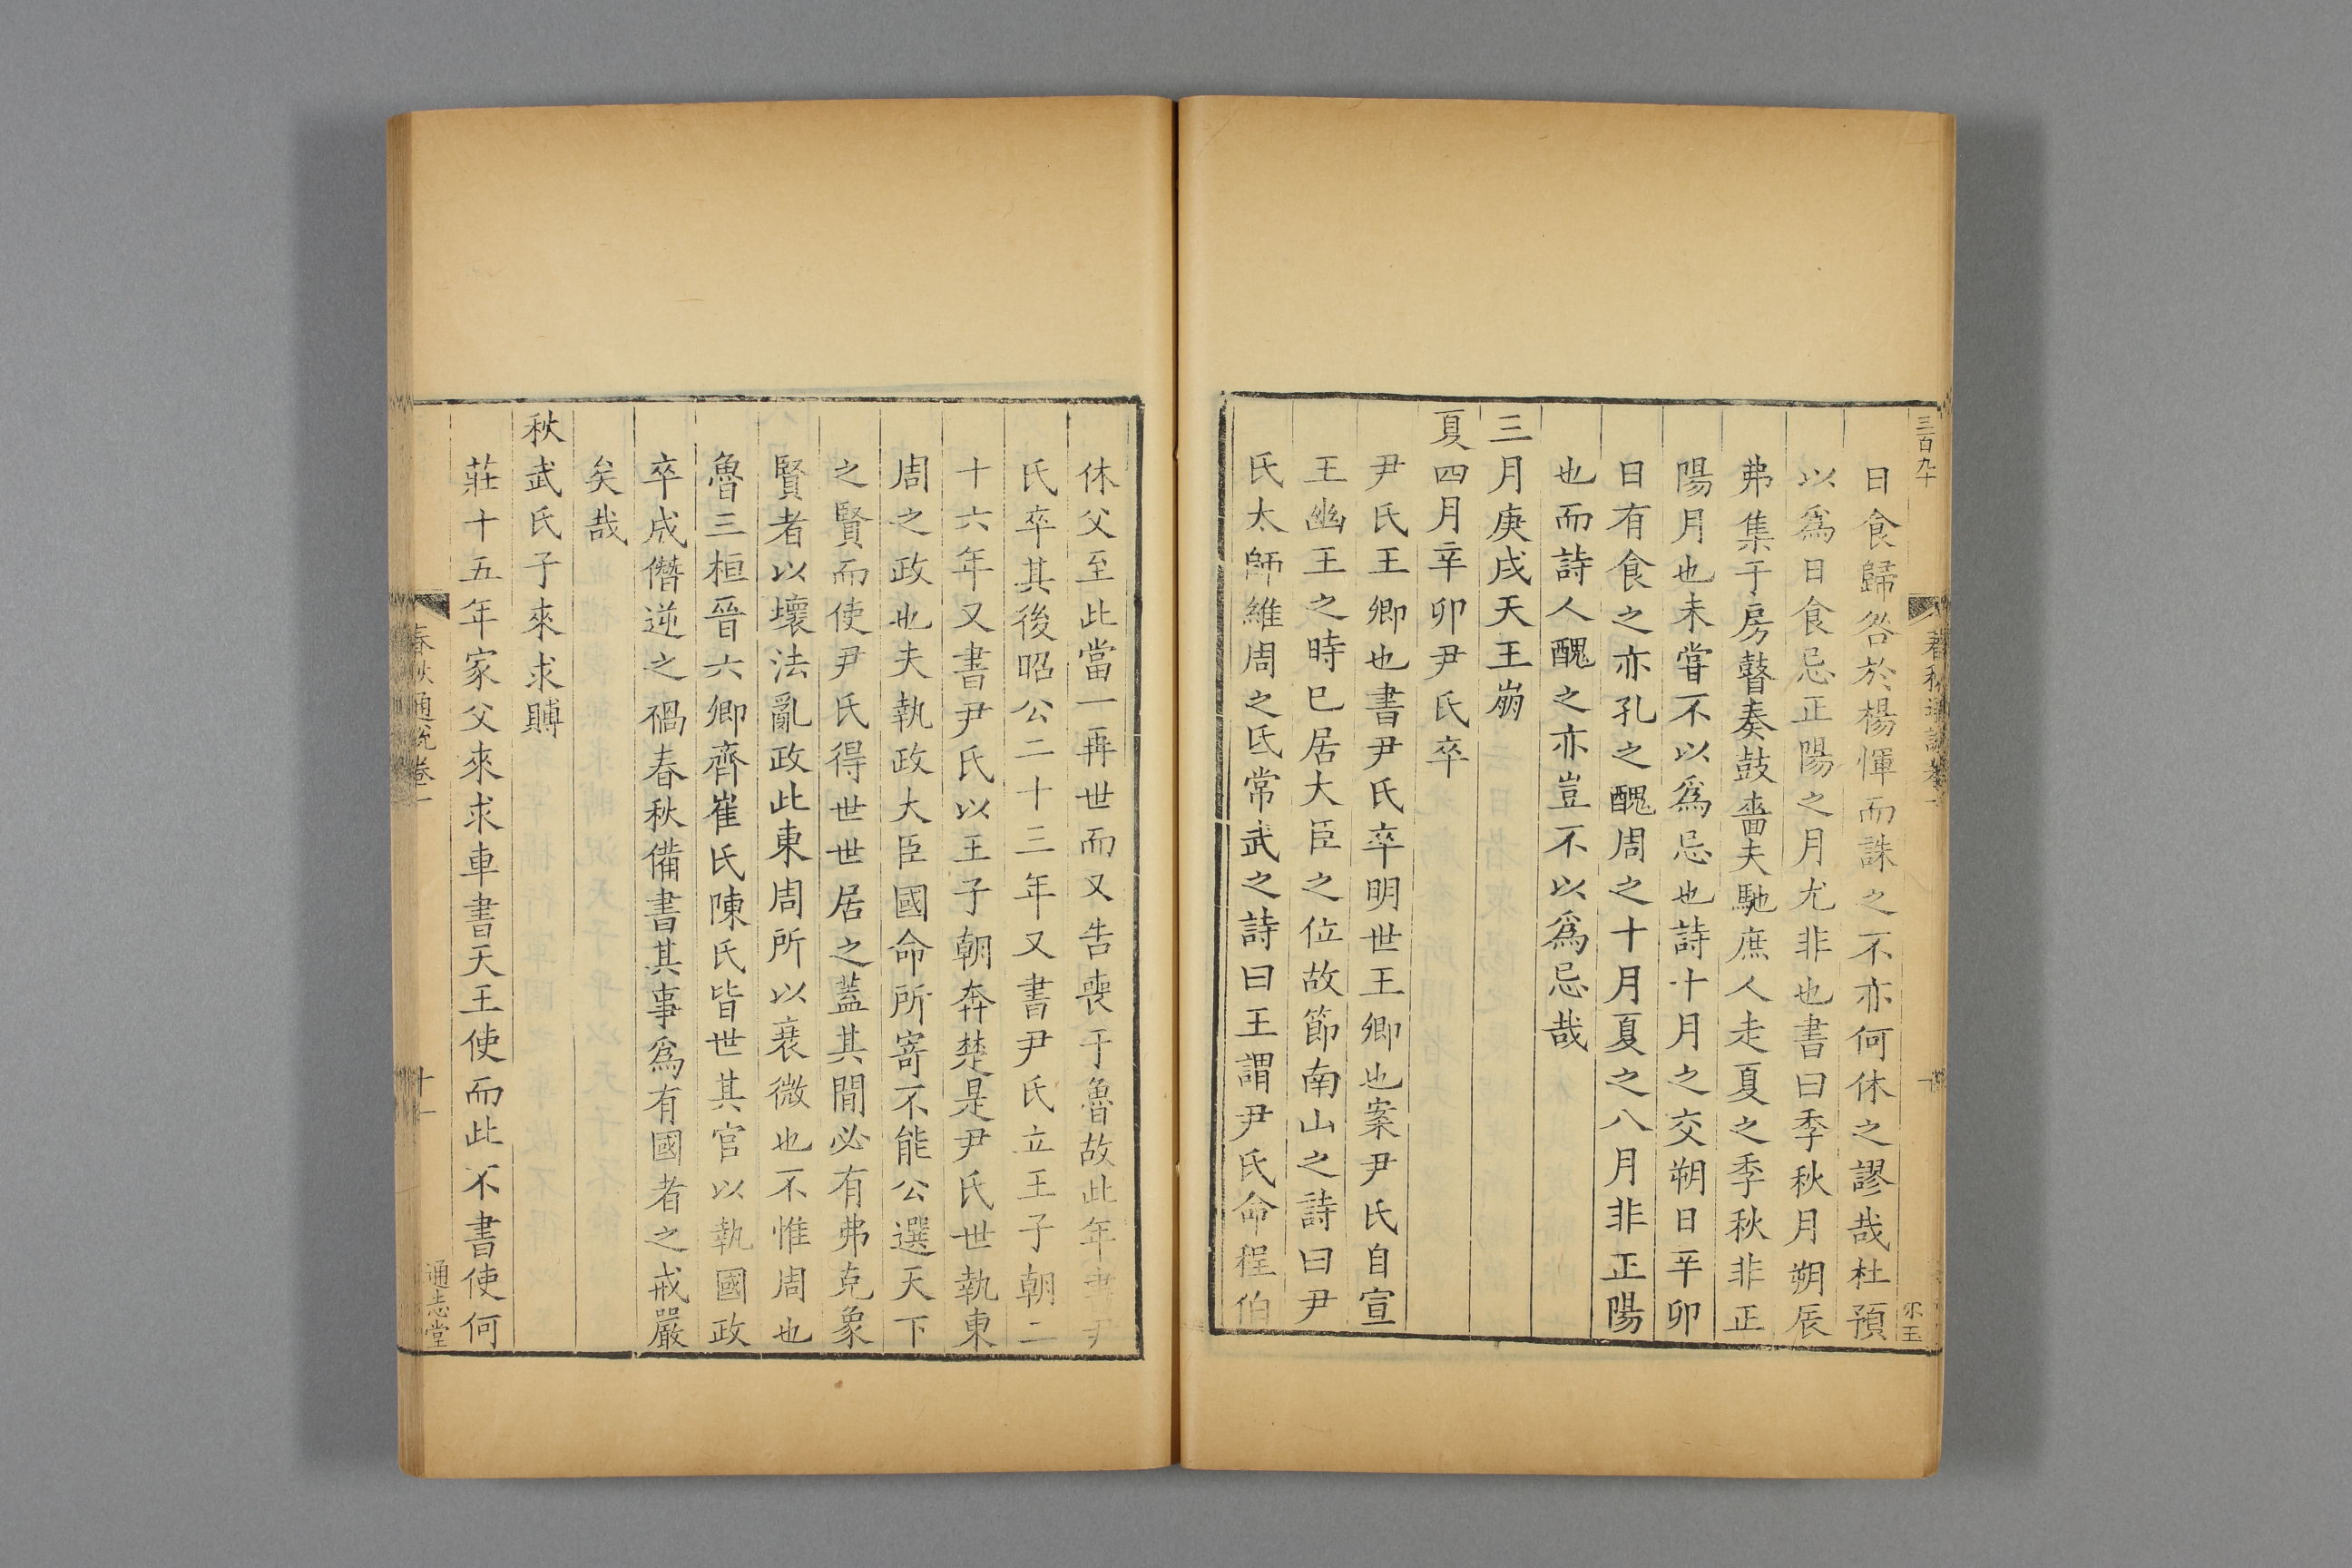 三百九十
日食歸咎於楊惲而誅之不亦何休之謬哉杜預
以爲日食忌正陽之月尤非也書曰季秋月朔辰
弗集于房瞽奏鼓嗇夫馳庶人走夏之季秋非正
陽月也未甞不以爲忌也詩十月之交朔日辛卯
日有食之亦孔之醜周之十月夏之八月非正陽
也而詩人醜之亦豈不以爲忌哉
三月庚戌天王崩
夏四月辛卯尹氏卒
尹氏王卿也書尹氏卒明世王卿也案尹氏自宣
王幽王之時已居大臣之位故節南山之詩曰尹
氏太師維周之氐常武之詩曰王謂尹氏命程伯
休父至此當一再世而又告喪于魯故此年書尹
氏卒其後昭公二十三年又書尹氏立王子朝二
十六年又書尹氏以王子朝奔楚是尹氏世執東
周之政也夫執政大臣國命所寄不能公選天下
之賢而使尹氏得世世居之蓋其間必有弗克象
賢者以壞法亂政此東周所以衰微也不惟周也
魯三桓晉六卿齊崔氏陳氏皆世其官以執國政
卒成僭逆之禍春秋備書其事爲有國者之戒嚴
矣哉
秋武氏子來求賻
莊十五年家父來求車書天王使而此不書使何
春秋通說卷一
十一
通志堂